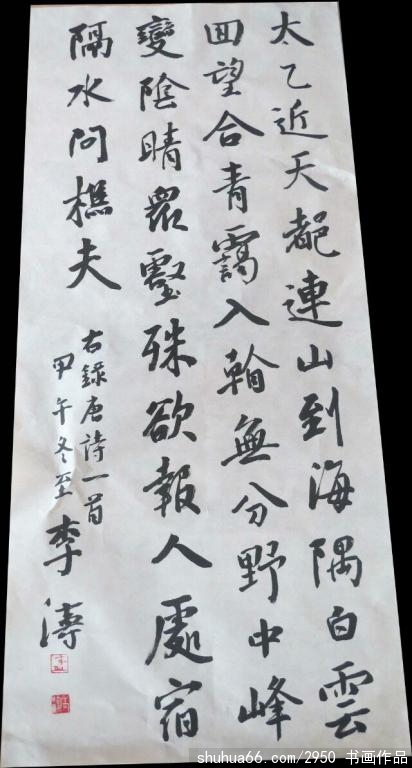 太乙近天都連山到海隅白雲
回望合青靄入看無分野中峰
變陰晴眾壑殊欲報人處宿
隔水問樵夫
右錄唐詩一首
甲午冬至李濤
shuhua66.com/2950 书画作品